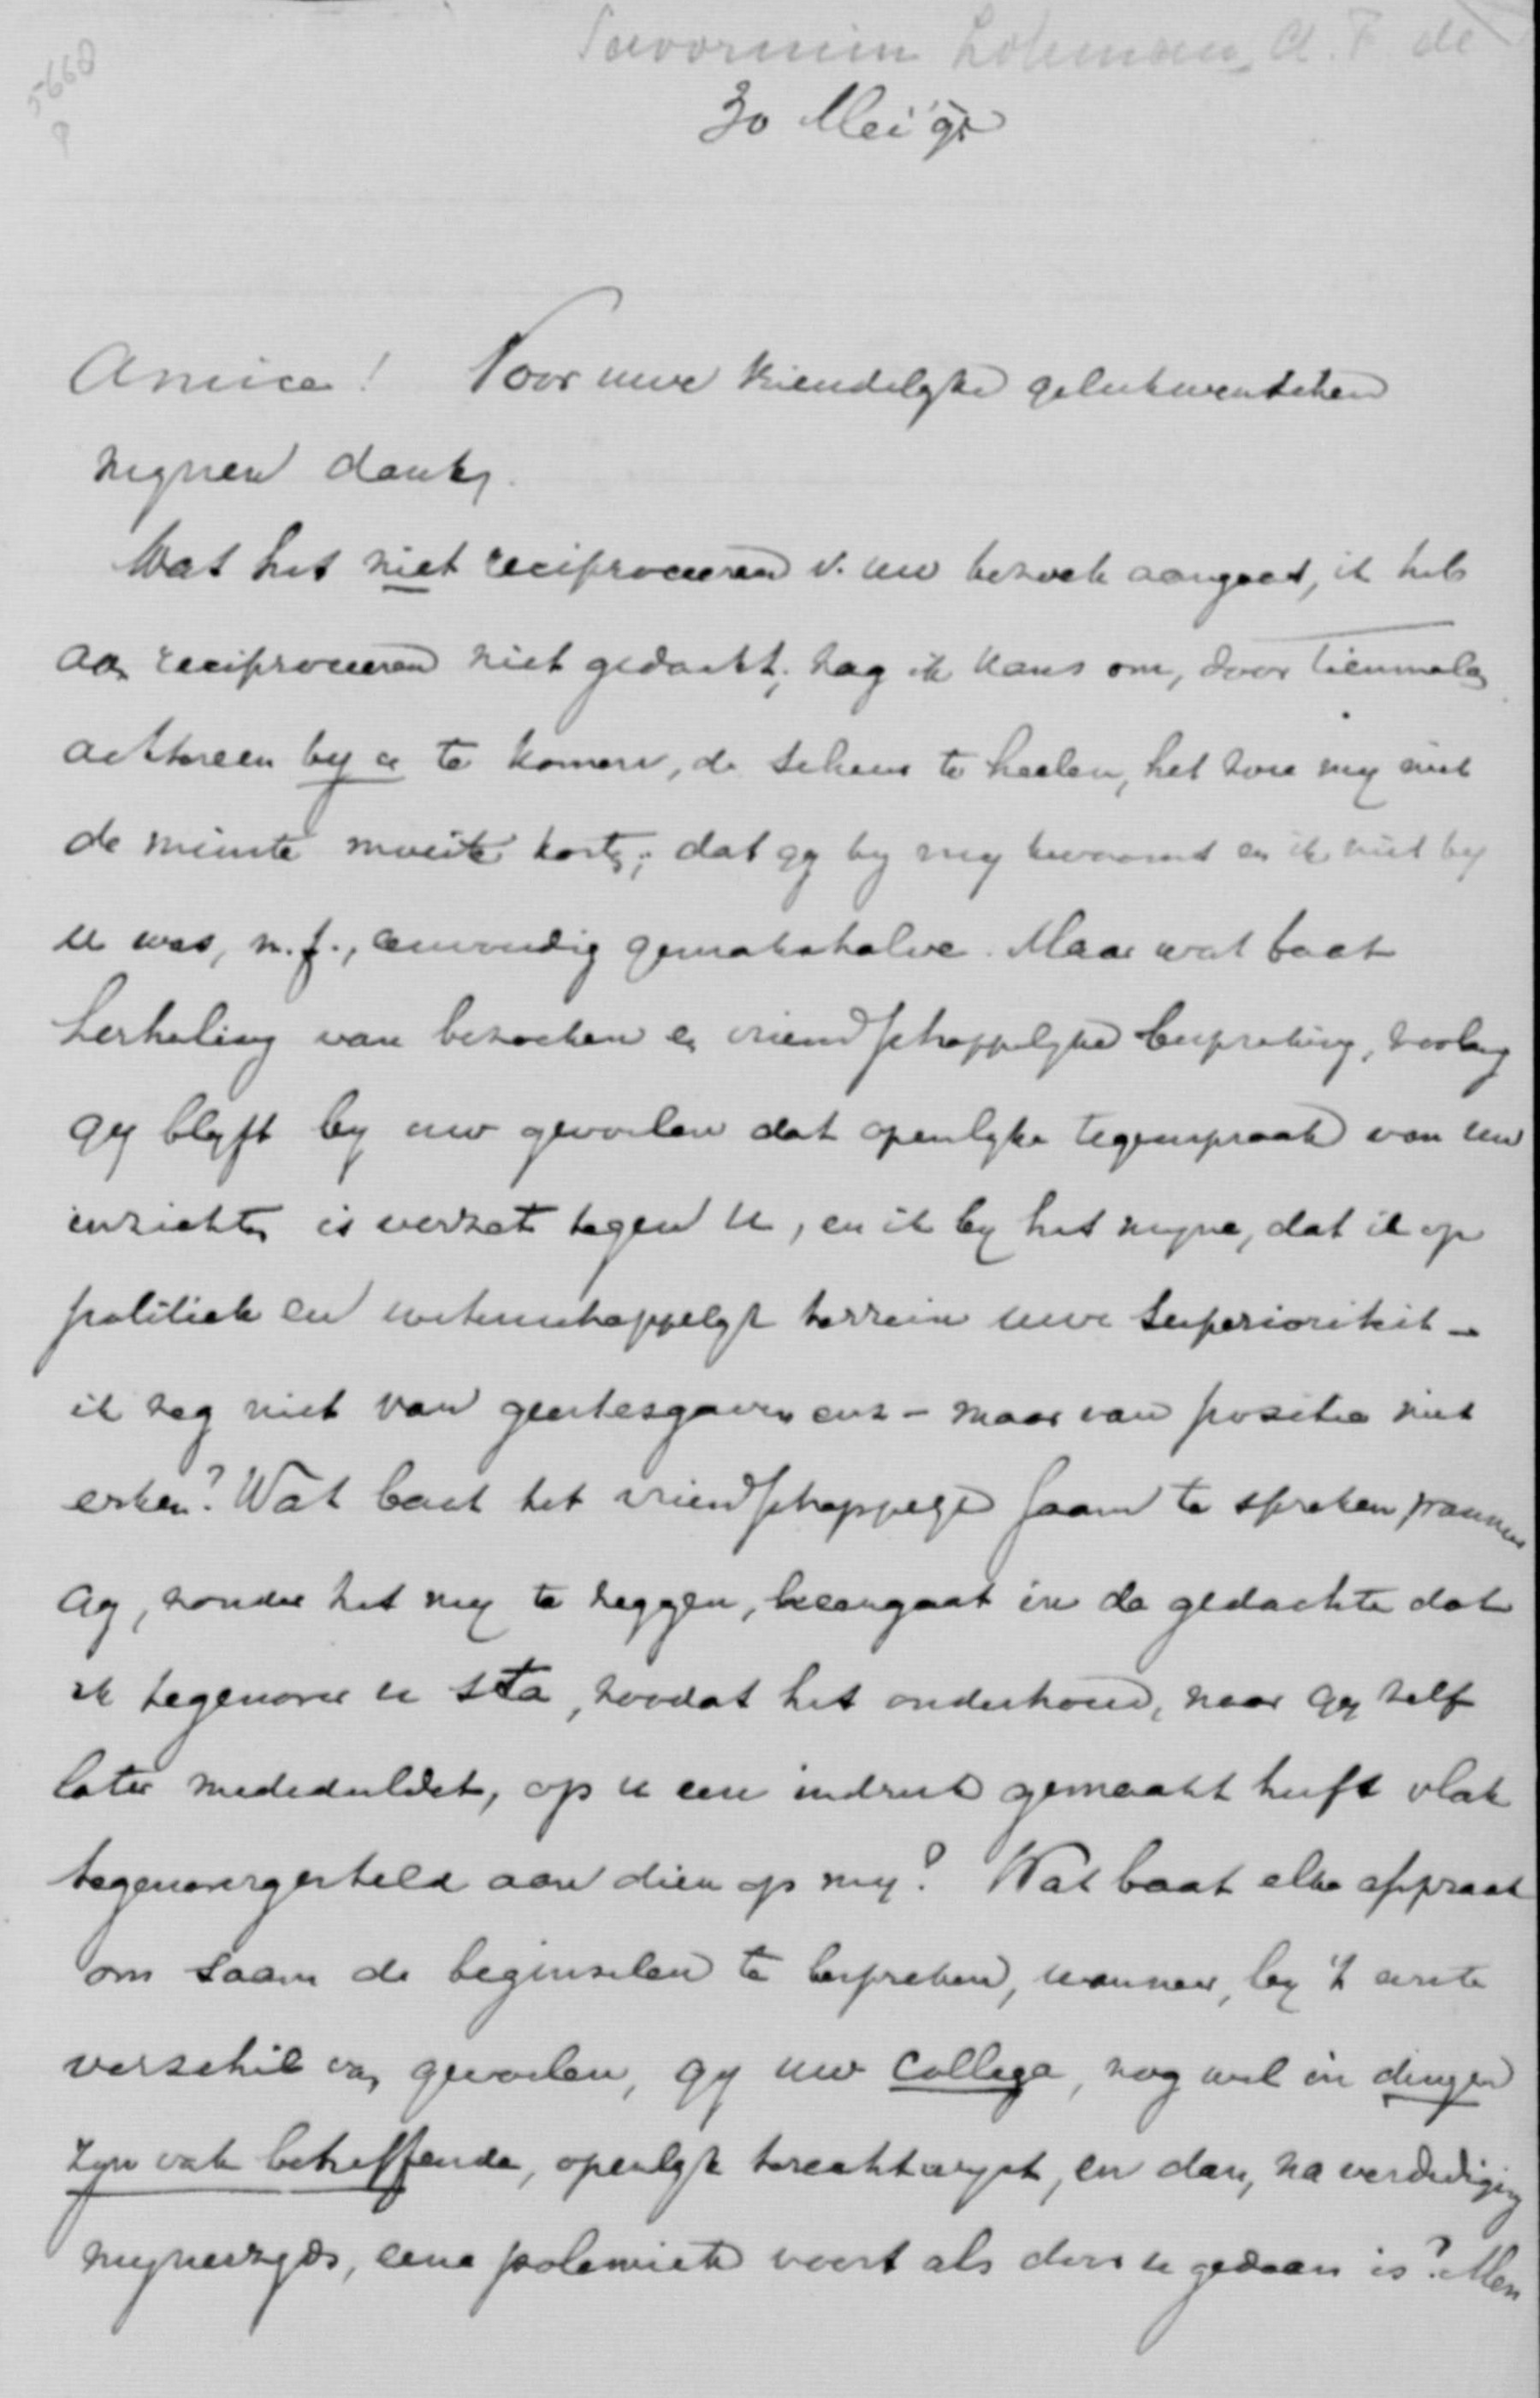 Savornin Lohman, A. F. de
5668
30 Mei 95
Amice! Voor uwe vriendelyke gelukwenschen
mynen dank.
Wat het niet reciproceeren v. uw bezoek aangaat, ik heb
aan reciproceeren niet gedacht; zag ik kans om, door tienmalen
achtereen by u te komen, de scheur te heelen, het zou my niet
de minste moeite kosten; dat gy by my kwaamt en ik niet by
u was, m.i., eenvoudig gemakshalve. Maar wat baat
herhaling van bezoeken en vriendschappelyke bespreking, zoolang
gy blyft by uw gevoelen dat openlyke tegenspraak van uw
inzichten is verzet tegen U, en ik by het myne, dat ik op
politiek en wetenschappelyk terrein uwe superioriteit –
ik zeg niet van geestesgaven enz – maar van positie niet
erken? Wat baat het vriendschappelyk saam te spreken wanneer
Gy, zonder het my te zeggen, heengaat in de gedachte dat
ik tegenover u sta, zoodat het onderhoud, naar Gy zelf
later mededeeldet, op u een indruk gemaakt heeft vlak
tegenovergesteld aan dien op my? Wat baat elke afspraak
om saam de beginselen te bespreken, wanneer, by 't eerste
verschil van gevoelen, gy uw Collega, nog wel in dingen
zyn vak betreffende, openlyk terechtwyst, en dan, na verdediging
mynerzyds, eene polemiek voert als door u gedaan is? Men